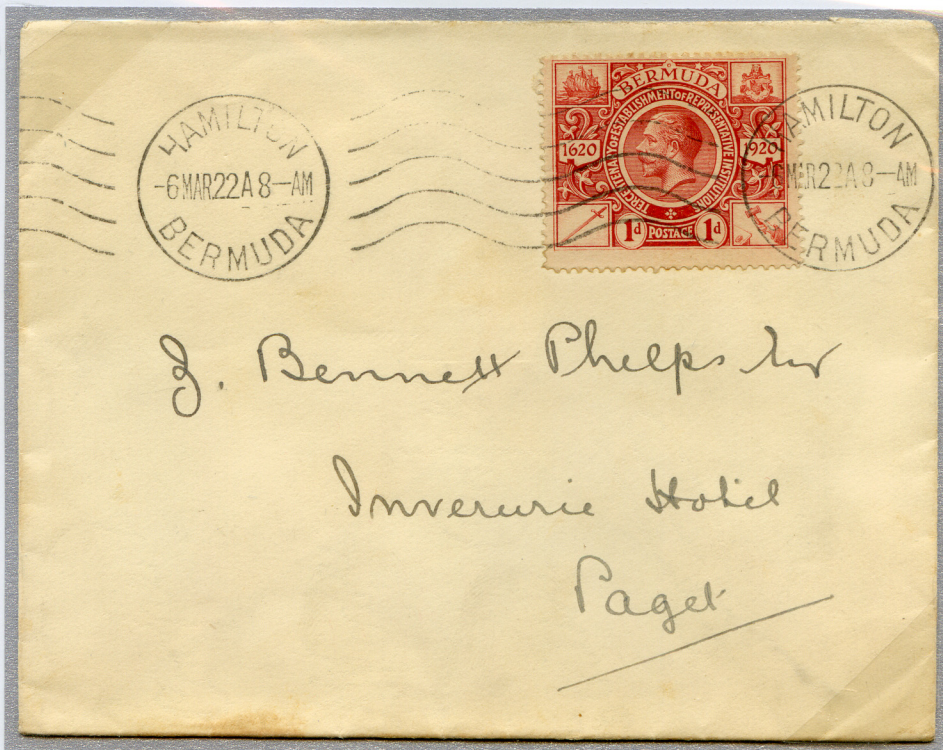 HAMILTON
-6MAR22A8-AM
BERMUDA
BERMUDA
TERCENTENARY OF ESTABLISHMENT OF REPRESENTATIVE INSTITUTIONS
1620 1920
1d POSTAGE 1d
HAMILTON
-6MAR22A8-AM
BERMUDA
Z. Bennett Phelps Esqr
Inverurie Hotel
Paget